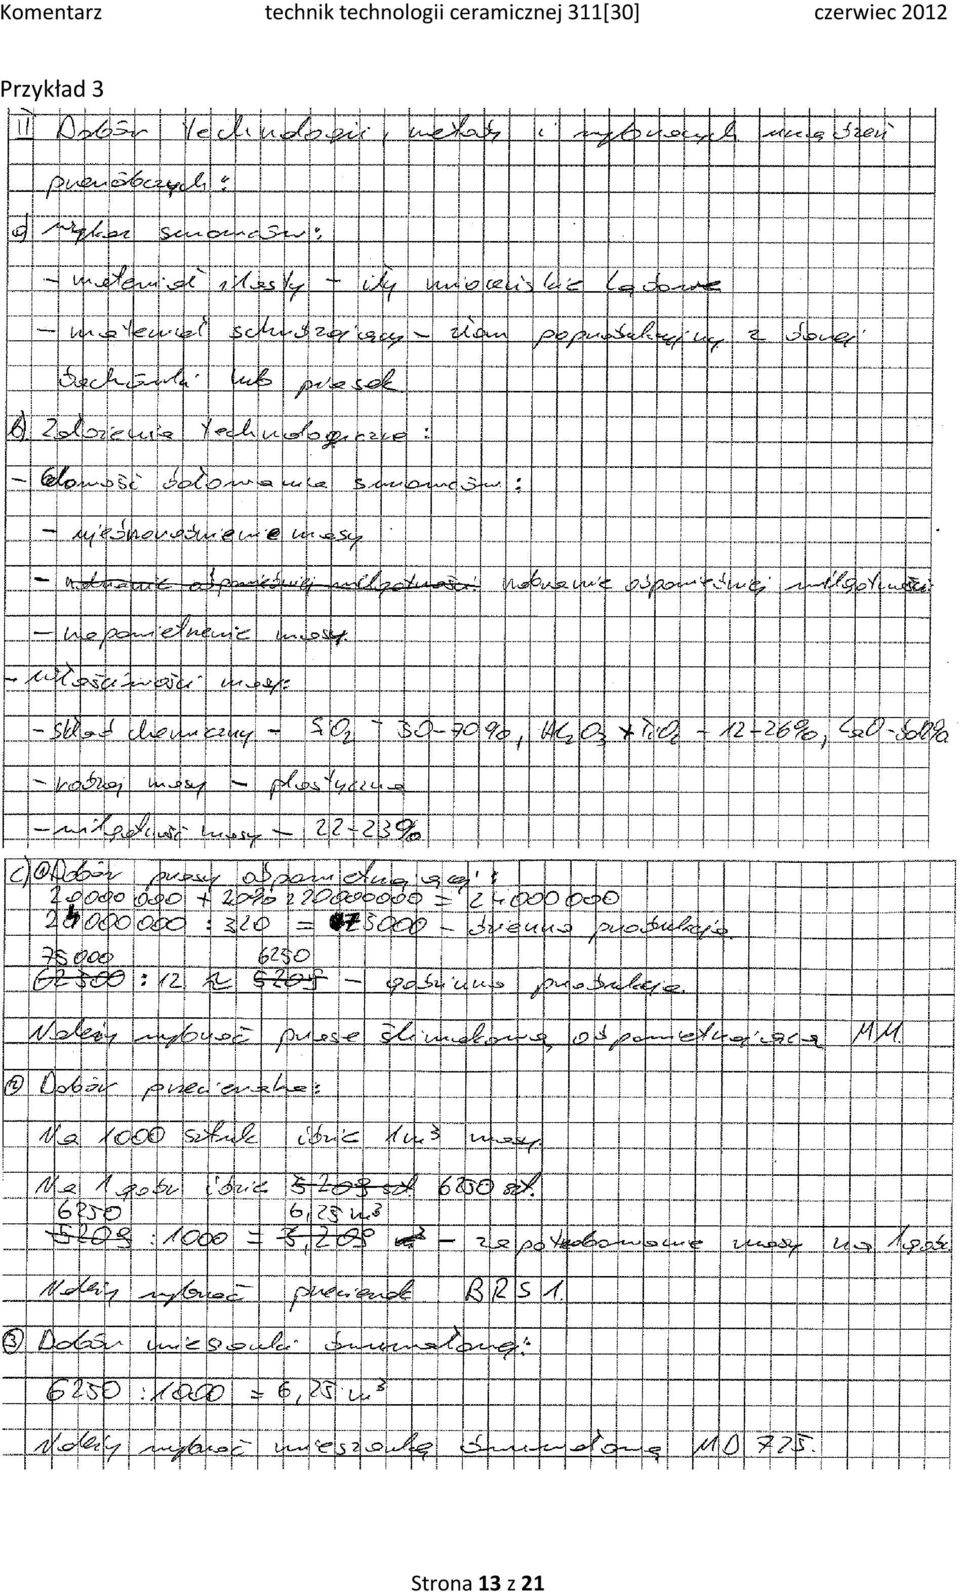 Komentarz technik technologii ceramicznej 311[30] czerwiec 2012
Przykład 3
II Dobór technologii, metody i wybranych urządzeń
przeróbczych:
a) Wykaz surowców:
- materiał ilasty - iły mioceńskie lądowe
- materiał schudzający - złom poprodukcyjny z danej
dachówki lub piasek
b) Założenia technologiczne:
- dozowania surowców:
- ujednorodnienie masy
- nadanie odpowiedniej wilgotności
- odpowietrzenie masy.
- Właściwości masy:
- skład chemiczny - SiO2 - 50-70%, Al2O3 + TiO2 - 12-26%, CaO -
- rodzaj masy - plastyczna
- wilgotność masy - 22-23%
c) ① Dobór prasy odpowietrzającej:
20000000 + 20% z 20000000 = 24000000
24000000 : 320 = 75000 - dzienna produkcja
75000 6250
62500 : 12 ≈ 5209 - godzinna produkcja.
Należy wybrać prasę ślimakową odpowietrzającą MM.
② Dobór przecieraka:
Na 1000 sztuk idzie 1m³ masy.
Na 1 godz idzie 5209 szt 6250 szt.
6250 6,25 m³
5209 : 1000 = 5,209 m³ - zapotrzebowanie masy na 1godz
Należy wybrać przecierak BRS1.
③ Dobór mieszarki dwuwałowej:
6250 : 1000 = 6,25 m³
Należy wybrać mieszarkę dwuwałową MD 725.
Strona 13 z 21